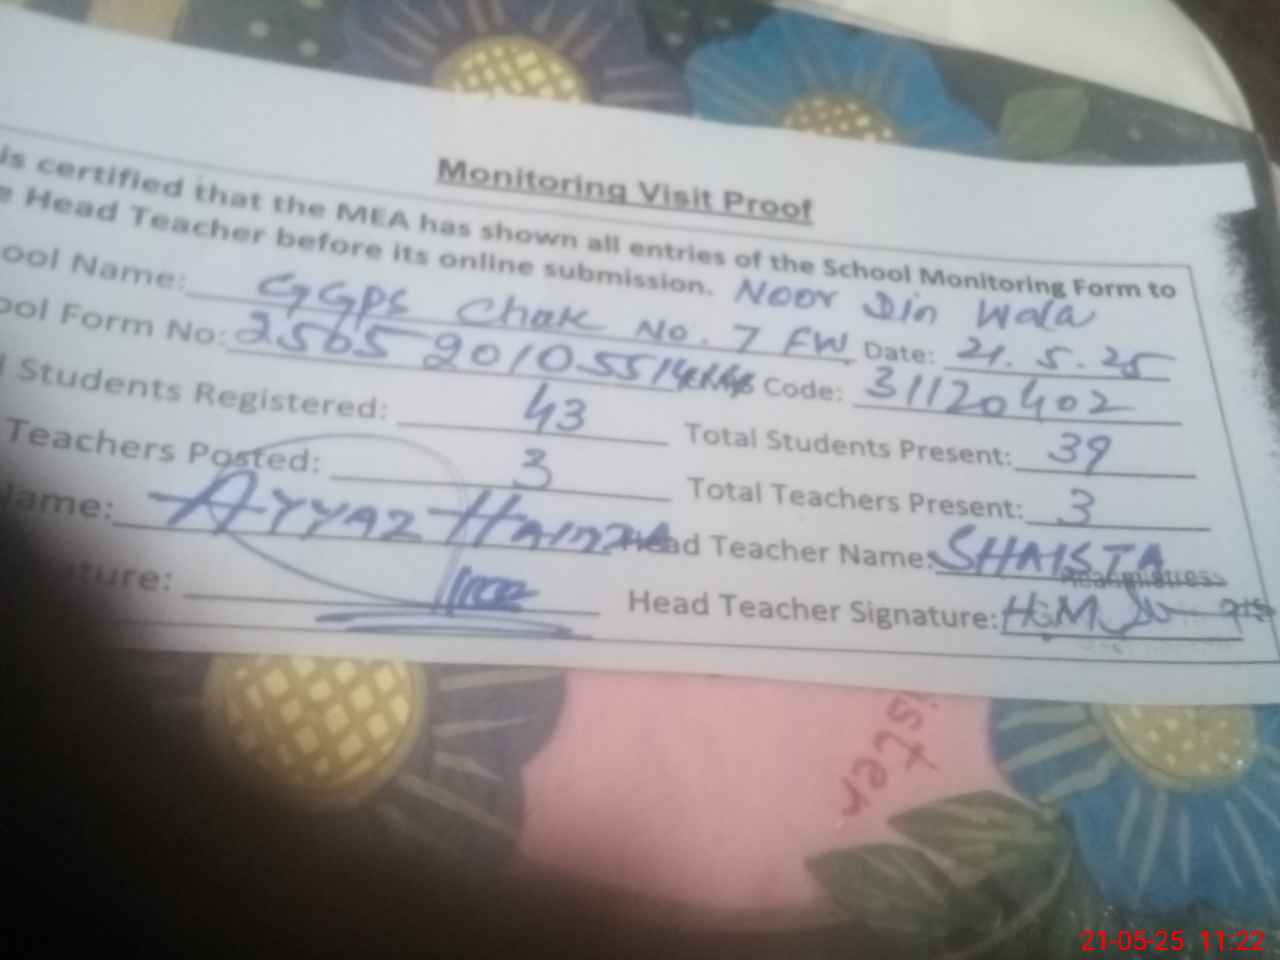 Monitoring Visit Proof
is certified that the MEA has shown all entries of the School Monitoring Form to
e Head Teacher before its online submission. Noor Din Wala
ool Name: GGPS Chak No. 7 FW Date: 21.5.25
ool Form No: Code: 31120402
Students Registered: 43 Total Students Present: 39
Teachers Posted: 3 Total Teachers Present: 3
Name: AYYAZ Head Teacher Name: SHAISTA
ture: Head Teacher Signature: H.M
ister
21-05-25 11:22